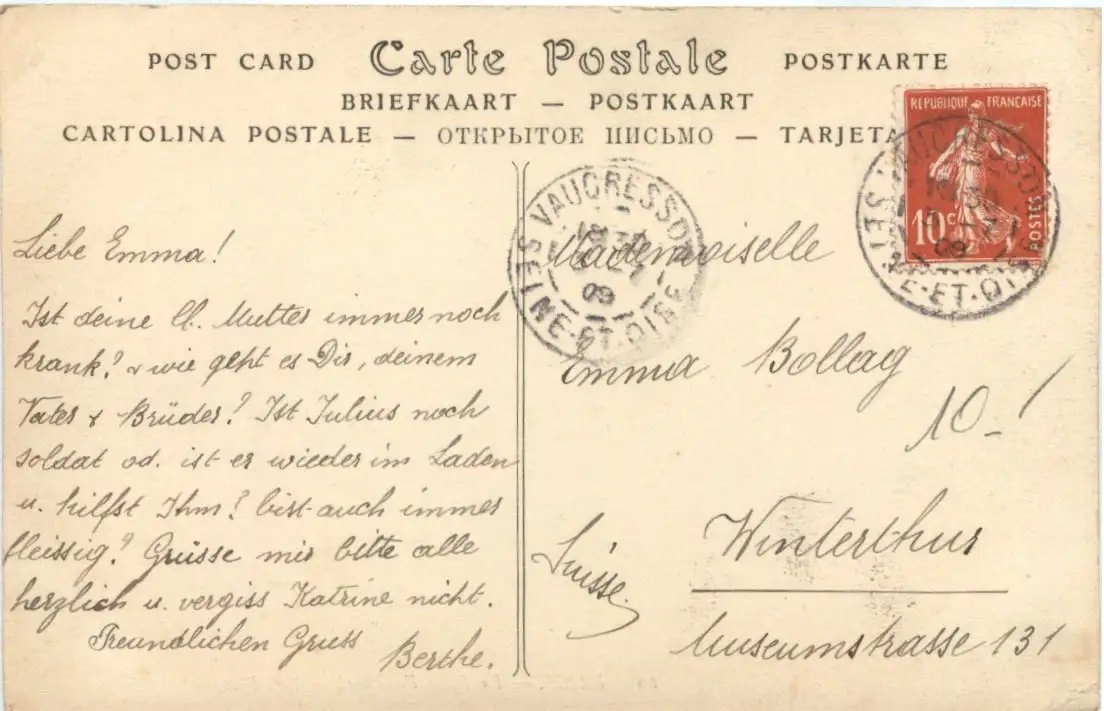 POST CARD Carte Postale POSTKARTE
BRIEFKAART — POSTKAART
CARTOLINA POSTALE — ОТКРЫТОЕ ПИСЬМО — TARJETA
RÉPUBLIQUE FRANÇAISE
10c POSTES
VAUCRESSON
SEINE-ET-OISE
09
VAUCRESSON
SEINE-ET-OISE
09
Liebe Emma!
Ist deine ll. Mutter immer noch
krank? & wie geht es Dir, deinem
Vater & Brüder? Ist Julius noch
soldat od. ist er wieder im Laden
u. hilfst Ihm? bist auch immer
fleissig? Grüsse mir bitte alle
herzlich u. vergiss Katrine nicht.
Freundlichen Gruss
Berthe.
Mademoiselle
Emma Bollag
10.-
Winterthur
Suisse.
Museumstrasse 131